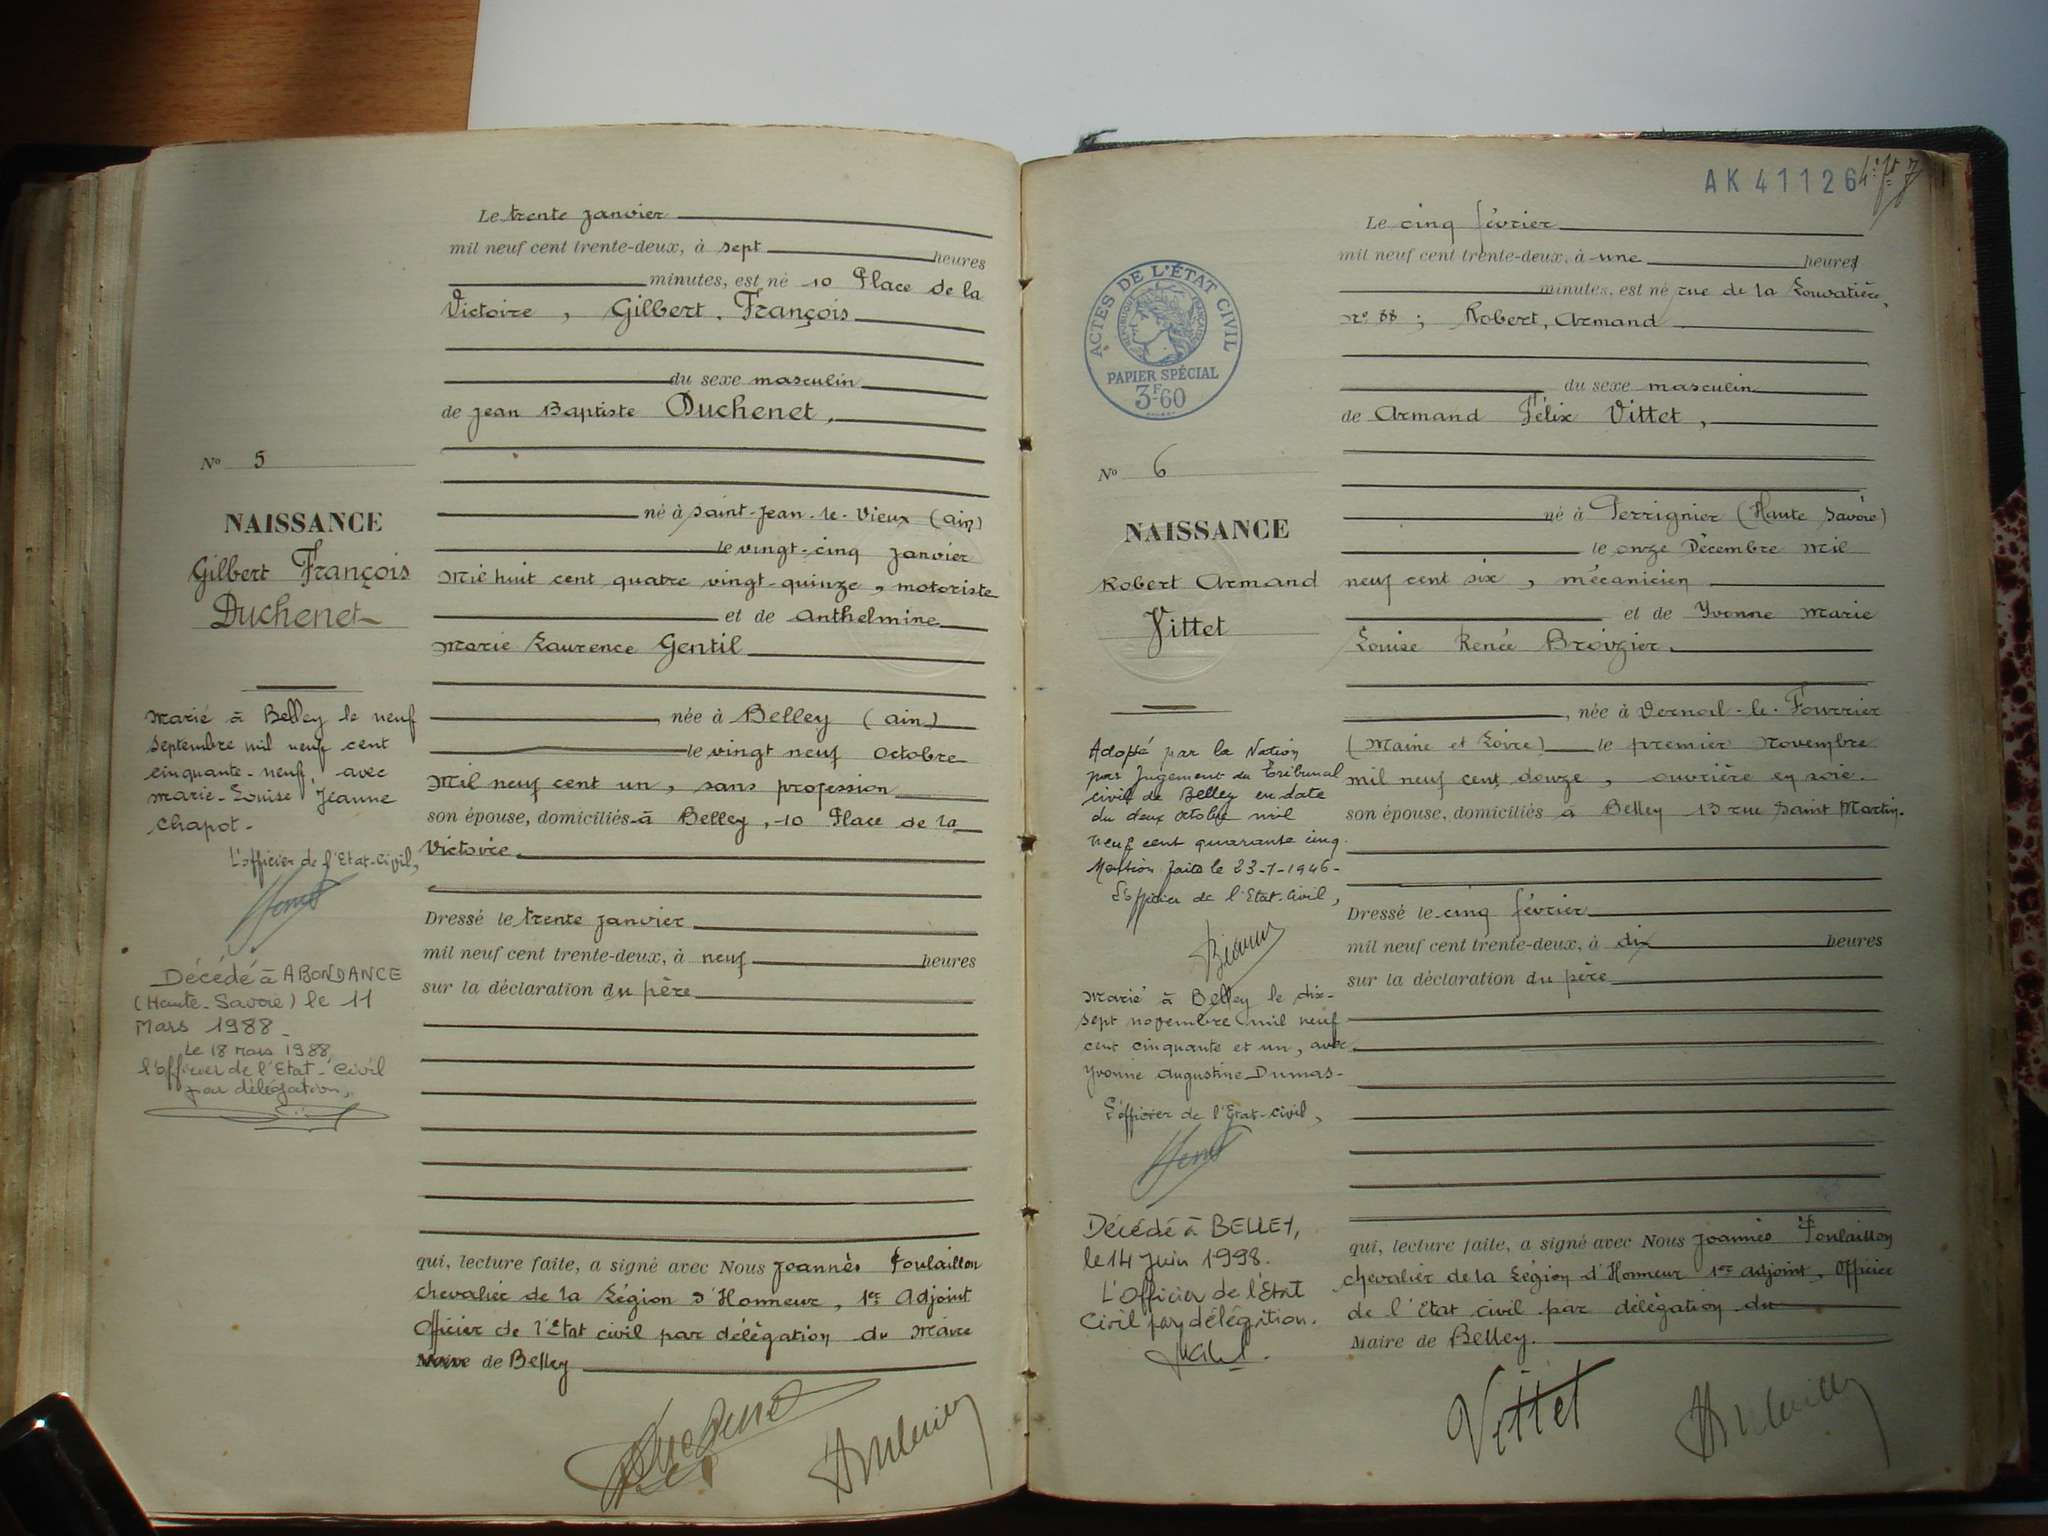 Le trente janvier
mil neuf cent trente-deux, à sept heures
minutes, est né 10 Place de la
Victoire, Gilbert, François
du sexe masculin
de Jean Baptiste Duchenet,
né à Saint-Jean-le-Vieux (Ain)
le vingt-cinq janvier
mil huit cent quatre vingt-quinze, motoriste
et de Anthelmine
Marie Laurence Gentil
, née à Belley (Ain)
le vingt neuf octobre
mil neuf cent un, sans profession
son épouse, domiciliés à Belley, 10 Place de la
Victoire.
Dressé le trente janvier
mil neuf cent trente-deux, à neuf heures
sur la déclaration du père
qui, lecture faite, a signé avec Nous Joannès Poulaillon
chevalier de la Légion d'Honneur, 1er Adjoint
Officier de l'Etat civil par délégation du Maire
de Belley
N° 5
NAISSANCE
Gilbert François
Duchenet
Marié à Belley le neuf
septembre mil neuf cent
cinquante-neuf, avec
Marie-Louise Jeanne
Chapot-
L'officier de l'Etat-Civil,
Décédé à ABONDANCE
(Haute-Savoie) le 11
Mars 1988-
Le 18 mars 1988,
l'officier de l'Etat-Civil
par délégation,
AK 41126
Le cinq février
mil neuf cent trente-deux, à une heures
minutes, est né rue de la Louvatière,
N° 88; Robert, Armand
du sexe masculin
de Armand Félix Vittet,
né à Perrignier (Haute Savoie)
le onze Décembre mil
neuf cent six, mécanicien
et de Yvonne Marie
Louise Renée Broizier.
, née à Vernoil-le-Fourrier
(Maine et Loire) le premier novembre
mil neuf cent douze, ouvrière en soie.
son épouse, domiciliés à Belley 13 rue Saint Martin.
Dressé le cinq février
mil neuf cent trente-deux, à dix heures
sur la déclaration du père
qui, lecture faite, a signé avec Nous Joannès Poulaillon
chevalier de la Légion d'Honneur 1er adjoint, Officier
de l'Etat civil par délégation du
Maire de Belley.
Vittet
ACTES DE L'ÉTAT CIVIL
RÉPUBLIQUE FRANÇAISE
PAPIER SPÉCIAL
3F60
N° 6
NAISSANCE
Robert Armand
Vittet
Adopté par la Nation
par Jugement du Tribunal
civil de Belley en date
du deux octobre mil
neuf cent quarante cinq.
Mention faite le 23-7-1946-
L'officier de l'Etat-Civil,
Marié à Belley le dix-
sept novembre mil neuf
cent cinquante et un, avec
Yvonne Augustine Dumas-
L'officier de l'Etat-civil,
Décédé à BELLEY,
le 14 Juin 1998.
L'Officier de l'Etat
Civil par délégation.